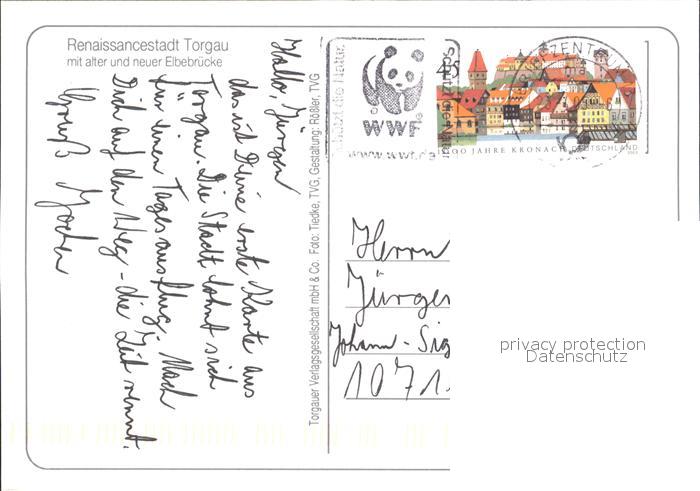 Renaissancestadt Torgau
mit alter und neuer Elbebrücke
Hallo, Jürgen
das ist Deine erste Karte aus
Torgau. Die Stadt lohnt sich
für einen Tagesausflug. Mach
Dich auf den Weg - die Zeit rennt.
Gruß Jochen
Torgauer Verlagsgesellschaft mbH & Co. Foto: Tiedke, TVG, Gestaltung: Rößler, TVG
Schützt die Natur
WWF
www.wwf.de
45
1000 JAHRE KRONACH DEUTSCHLAND
2003
Herrn
Jürgen
Johann-Sig
1071
privacy protection
Datenschutz